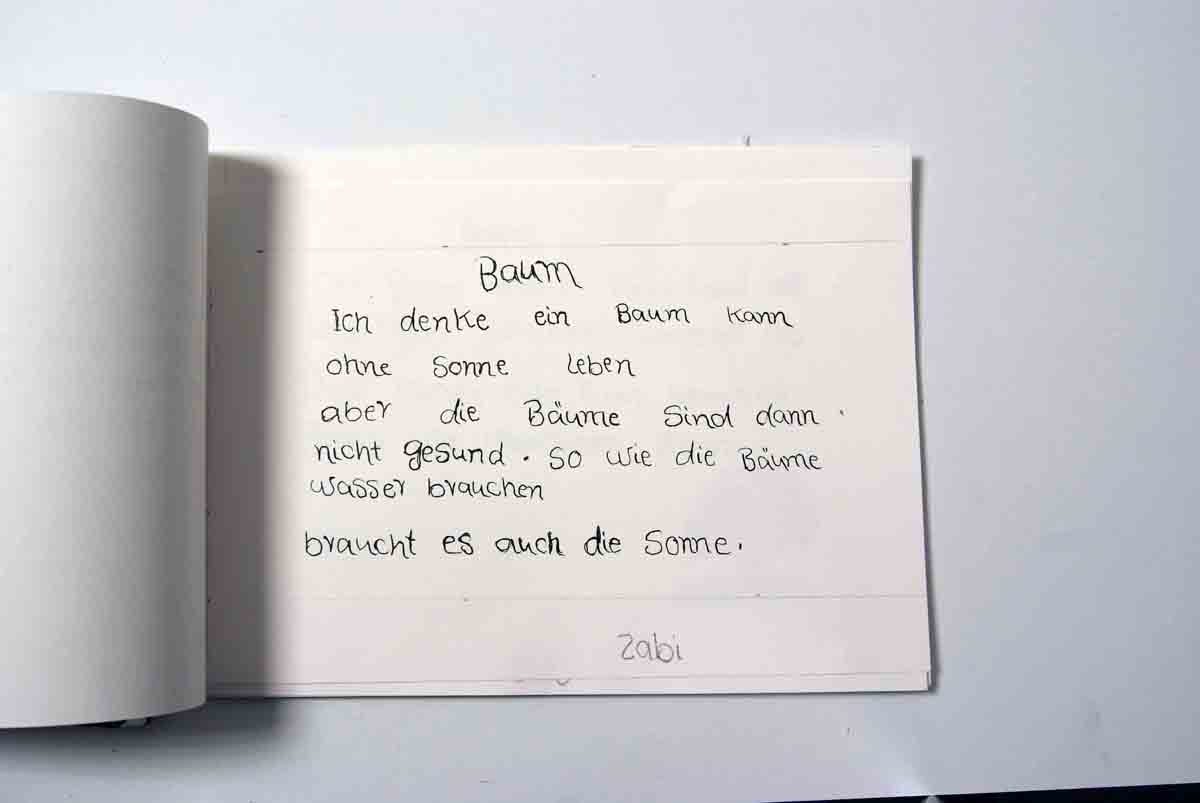 Baum
Ich denke ein Baum kann
ohne Sonne leben
aber die Bäume sind dann
nicht gesund. So wie die Bäume
wasser brauchen
braucht es auch die Sonne.
Zabi